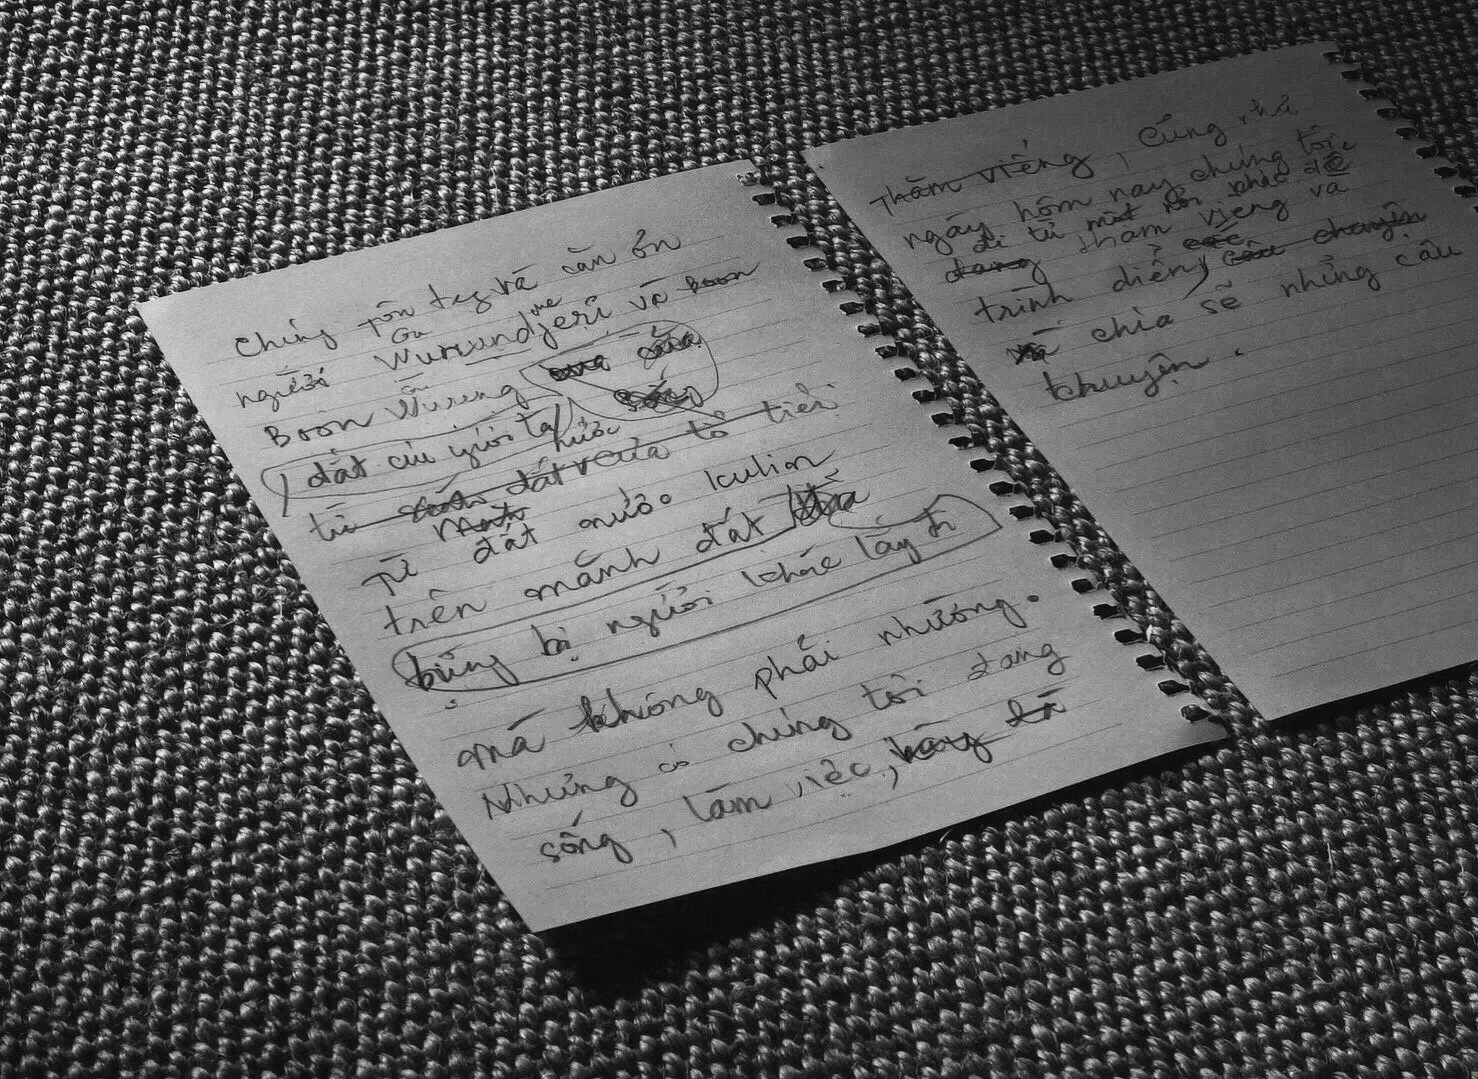 Chúng tôn trọng và cản ơn
người Wurundjeri và Boon
Boon Wurung
đất củi giới ta
nước
từ đất của tổ tiên
Từ đất nước kulin
trên mảnh đất
bủng bị người khác lấy đi
mà không phải nhường.
Những có chúng tôi đang
sống, làm việc, hãy đã
Thăm viếng, Cũng thế
ngày hôm nay chúng tôi
đi từ một nơi khác để
đang thăm viếng và
trình diển, câu chuyện
và chia sẽ những câu
chuyện.